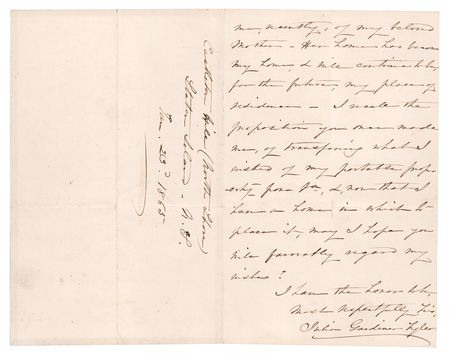 me, recently, of my beloved
Mother – Her home has become
my home, & will continue to be,
for the future, my place of
residence – I recall the
proposition you once made
me, of transferring what I
wished of my portable prop
erty from Va, & now that I
have a home in which to
place it, may I hope you
will favorably regard my
wishes?
I have the honor to be,
Most respectfully Yrs,
Julia Gardiner Tyler
Castleton Hill (North Shore)
Staten Island – N.Y.
Jan – 23d 1865